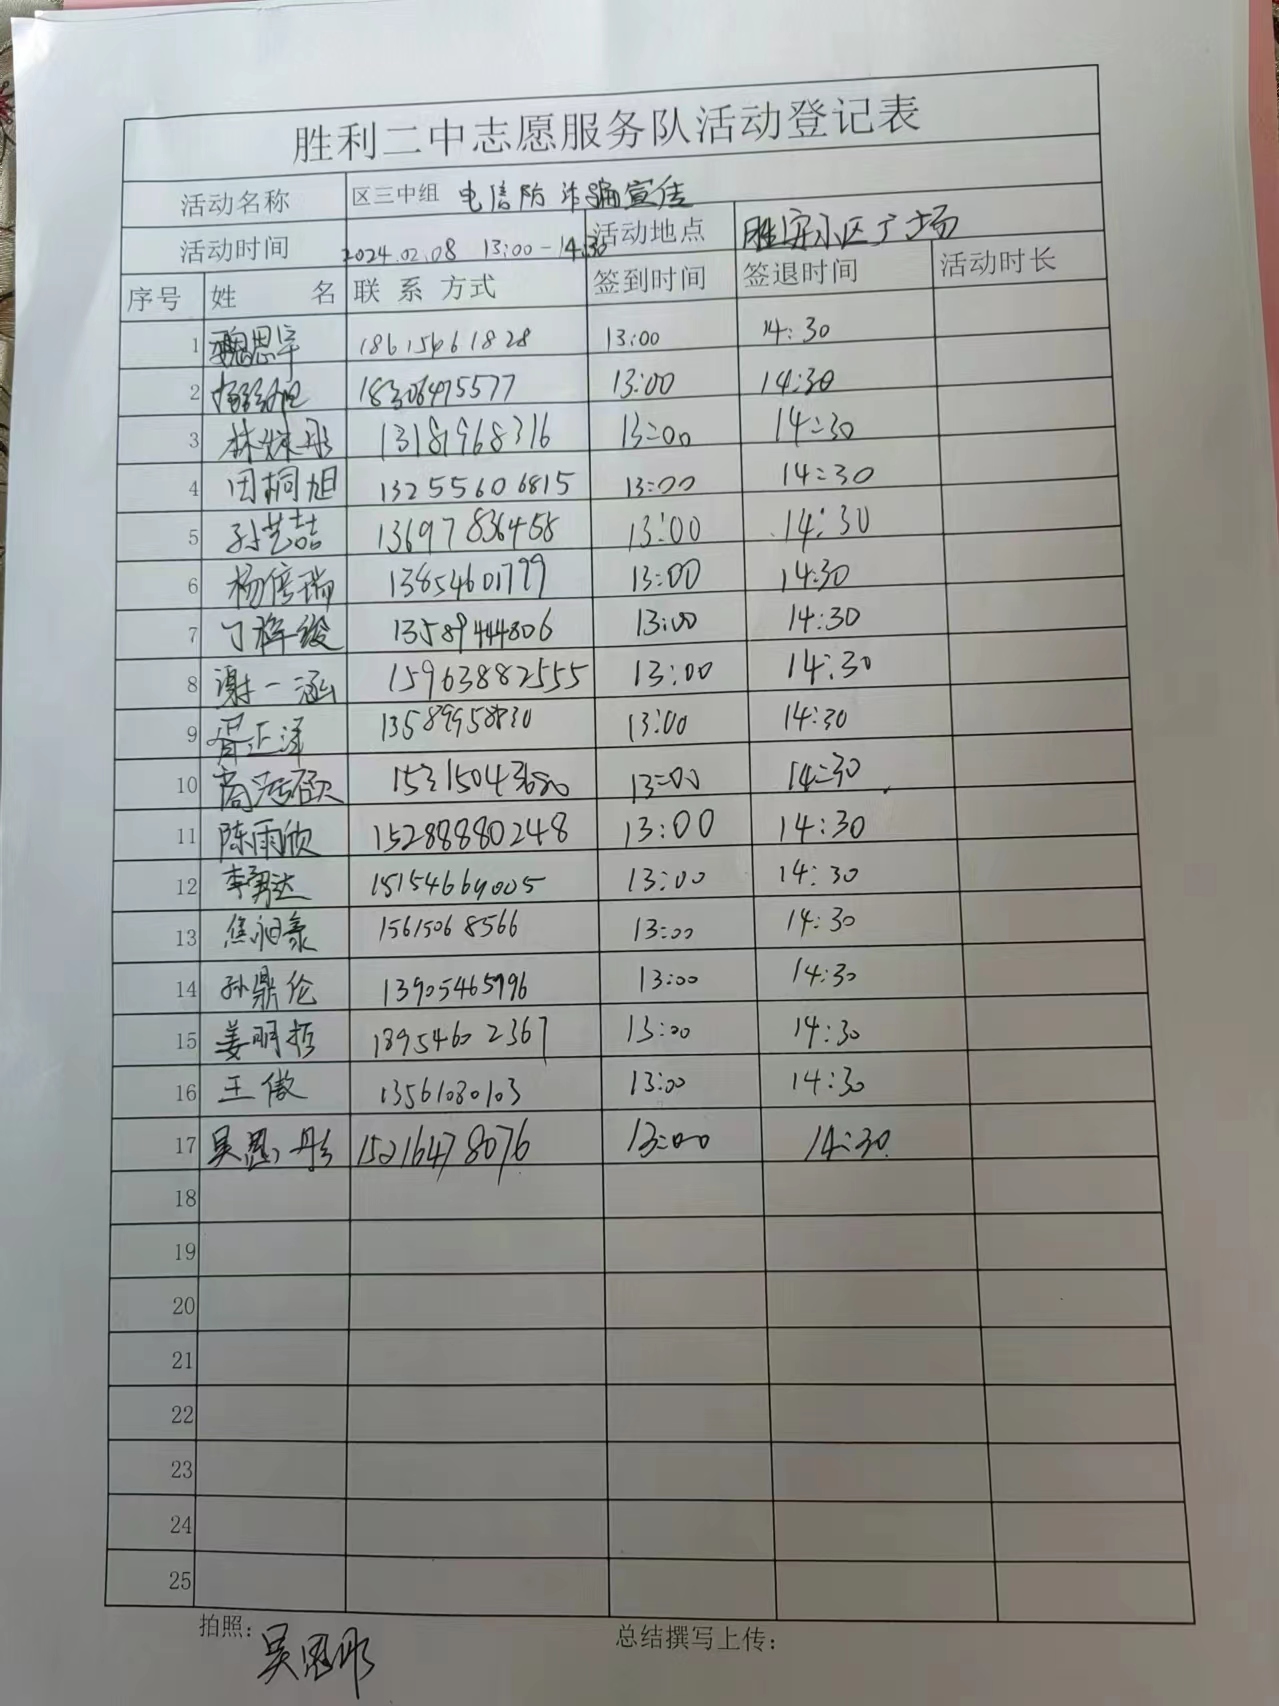 胜利二中志愿服务队活动登记表
活动名称 区三中组 电信防诈骗宣传
活动时间 2024.02.08 13:00-14:30 活动地点 胜宾小区广场
序号 姓名 联系方式 签到时间 签退时间 活动时长
1 魏思宇 18615461828 13:00 14:30
2 18306475577 13:00 14:30
3 林姝彤 13181968316 13:00 14:30
4 田桐旭 13255606815 13:00 14:30
5 孙艺喆 13697836458 13:00 14:30
6 杨倍瑞 13854601799 13:00 14:30
7 丁梓绫 13589444806 13:00 14:30
8 谢一涵 15963882555 13:00 14:30
9 胥正泽 13589958830 13:00 14:30
10 13:00 14:30
11 陈雨欣 15288880248 13:00 14:30
12 李勇达 15154669005 13:00 14:30
13 焦昶豪 15615068566 13:00 14:30
14 孙鼎伦 13905465996 13:00 14:30
15 姜明哲 18954602367 13:00 14:30
16 王傲 13561080103 13:00 14:30
17 吴思彤 15216478076 13:00 14:30
18
19
20
21
22
23
24
25
拍照: 吴思彤 总结撰写上传: